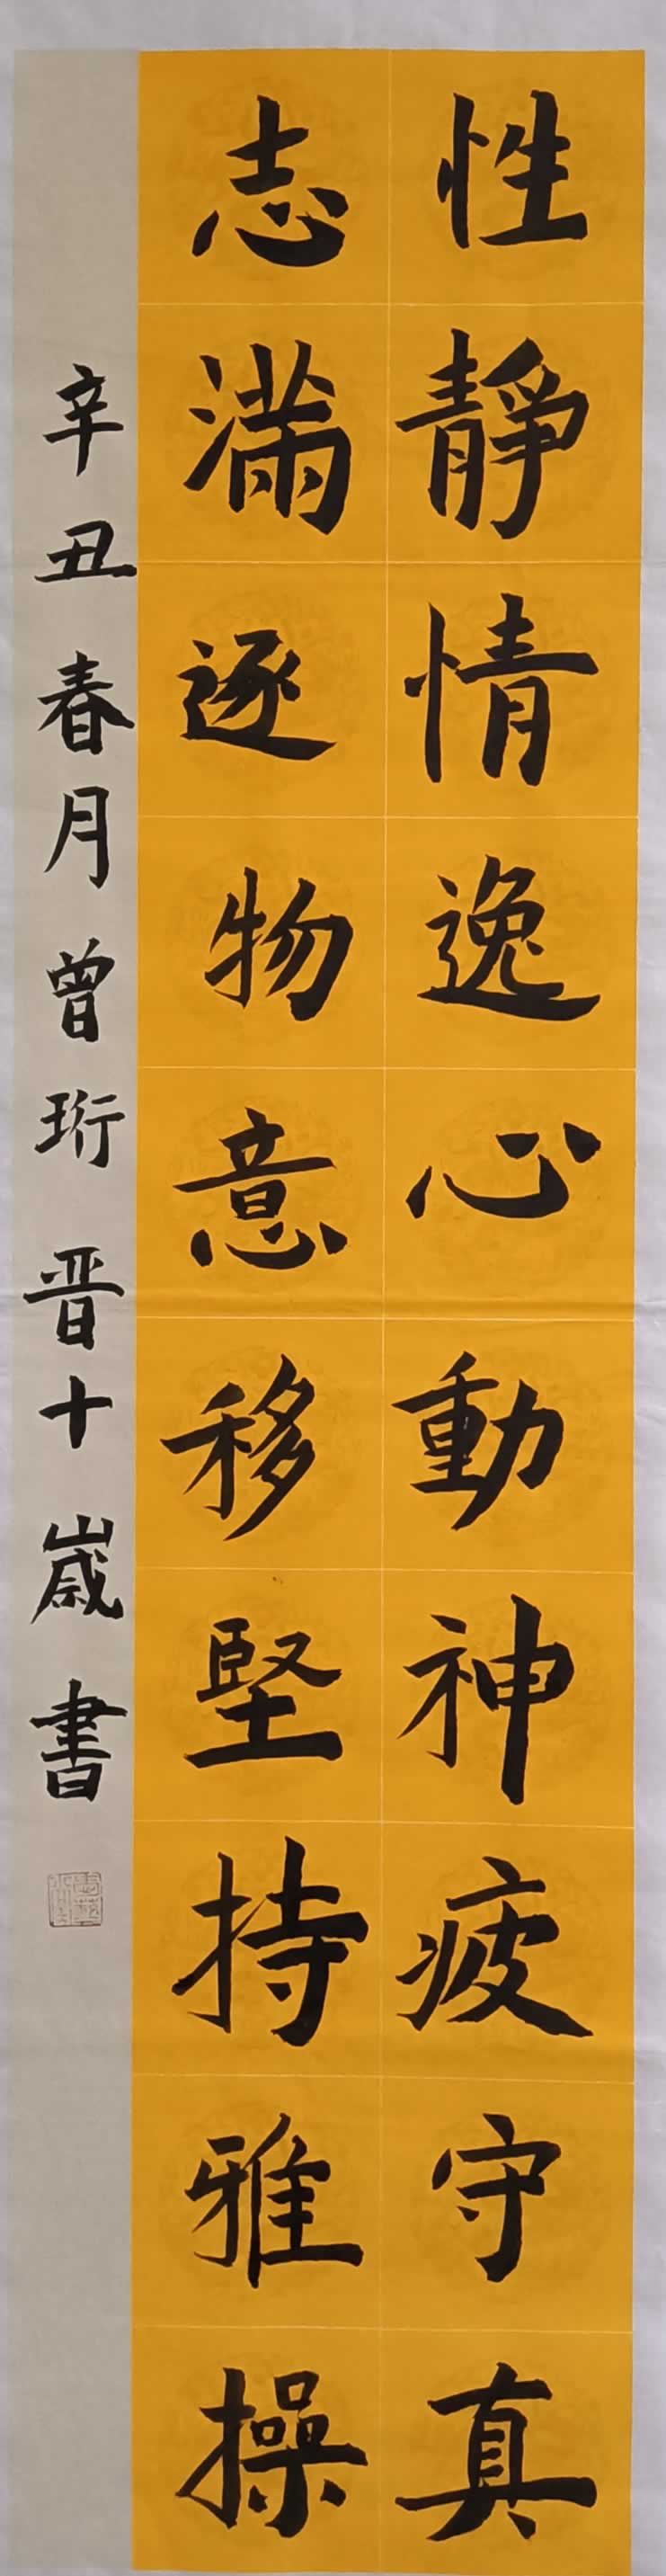 性靜情逸心動神疲守真
志滿逐物意移堅持雅操
辛丑春月曾珩晋十歲書